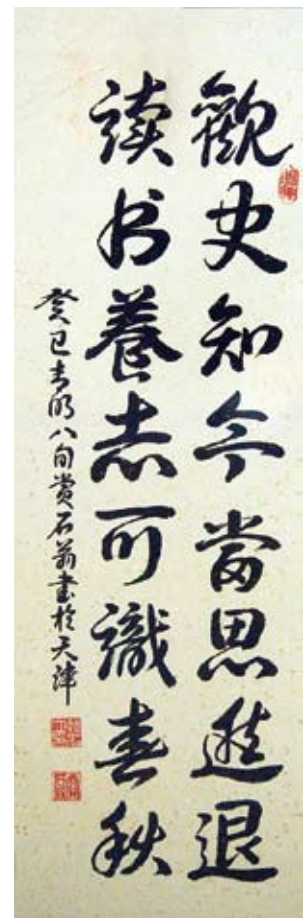 觀史知今當思進退
读书養志可識春秋
癸巳清明八旬赏石翁書於天津